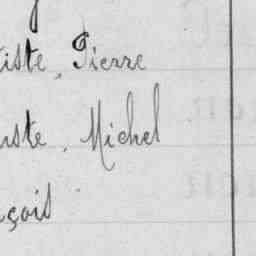 tiste, Pierre
uste, Michel
nçois